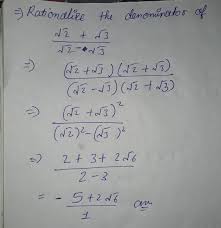 ⇒ Rationalise the denominator of
(√2 + √3)/(√2 - √3)
⇒ ((√2 + √3)(√2 + √3))/((√2 - √3)(√2 + √3))
⇒ (√2 + √3)²/((√2)² - (√3)²)
⇒ (2 + 3 + 2√6)/(2 - 3)
= - (5 + 2√6)/1 ans